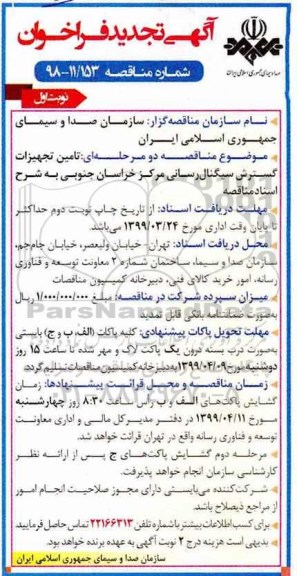 آگهی تجدید فراخوان
شماره مناقصه ۱۱/۱۵۳-۹۸
صدا و سیمای جمهوری اسلامی ایران
نوبت اول
نــام سازمان مناقصه‌گزار: سازمان صدا و سیمای
جمهـوری اسـلامی ایـران
موضـوع مناقصـه دو مرحلـه‌ای: تامین تجهیزات
گسترش سیگنال‌رسانی مرکز خراسان جنوبی به شرح
اسناد مناقصه
مهلت دریافت اسناد: از تاریخ چاپ نوبت دوم حداکثر
تا پایان وقت اداری مورخ ۱۳۹۹/۰۳/۲۴ می‌باشد.
محل دریافت اسناد: تهران - خیابان ولیعصر، خیابان جام‌جم،
سازمان صدا و سیما، ساختمان شماره ۲ معاونت توسعه و فناوری
رسانه، امور خرید کالای فنی، دبیرخانه کمیسیون مناقصات
میزان سپرده شرکت در مناقصه: مبلغ ۱/۰۰۰/۰۰۰/۰۰۰ ریال
بصورت ضمانتنامه بانکی قابل تمدید
مهلت تحویل پاکات پیشنهادی: کلیه پاکات (الف، ب و ج) بایستی
به‌صورت درب بسته درون یک پاکت لاک و مهر شده تا ساعت ۱۵ روز
دوشنبه مورخ ۱۳۹۹/۰۴/۰۹ به دبیرخانه کمیسیون مناقصات تسلیم گردد.
زمان مناقصه و محل قرائت پیشنهادها: زمان
گشایش پاکت‌های الف و ب راس ساعت ۸:۳۰ روز چهارشنبه
مـورخ ۱۳۹۹/۰۴/۱۱ در دفتـر مدیـرکل مالی و اداری معاونت
توسعه و فناوری رسانه واقع در تهران قرائت خواهد شد.
مرحله دوم گشایش پاکت‌های ج پس از ارائه نظر
کارشناسی سازمان انجام خواهد پذیرفت.
شرکت‌کننده می‌بایستی دارای مجوز صلاحیت انجام امور
از مراجع ذیصلاح باشد.
برای کسب اطلاعات بیشتر با شماره تلفن ۲۲۱۶۶۳۱۳ تماس حاصل فرمایید.
بدیهی است هزینه درج ۲ نوبت آگهی به عهده برنده خواهد بود.
سازمان صدا و سیمای جمهوری اسلامی ایران